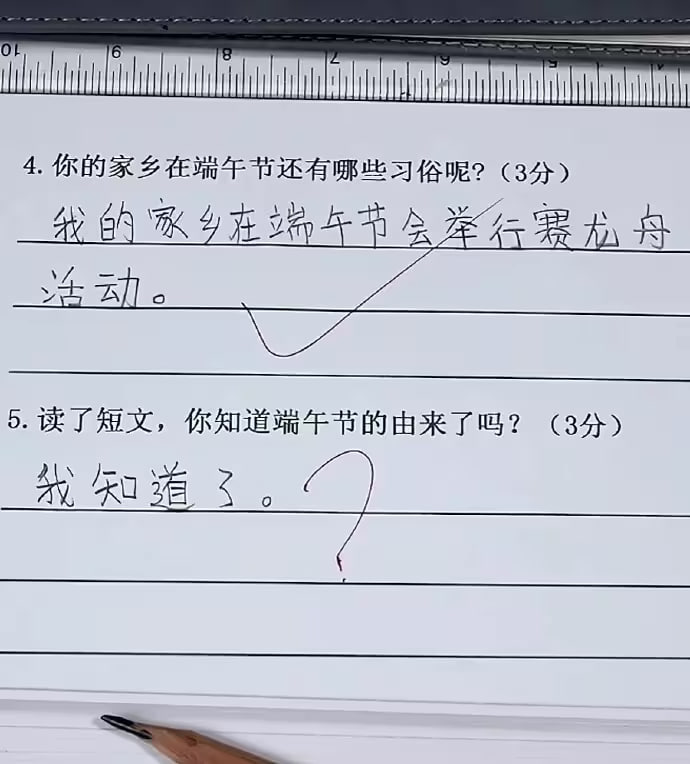 10 9 8 7 6 5
4. 你的家乡在端午节还有哪些习俗呢?（3分）
我的家乡在端午节会举行赛龙舟
活动。
5. 读了短文，你知道端午节的由来了吗？（3分）
我知道了。?